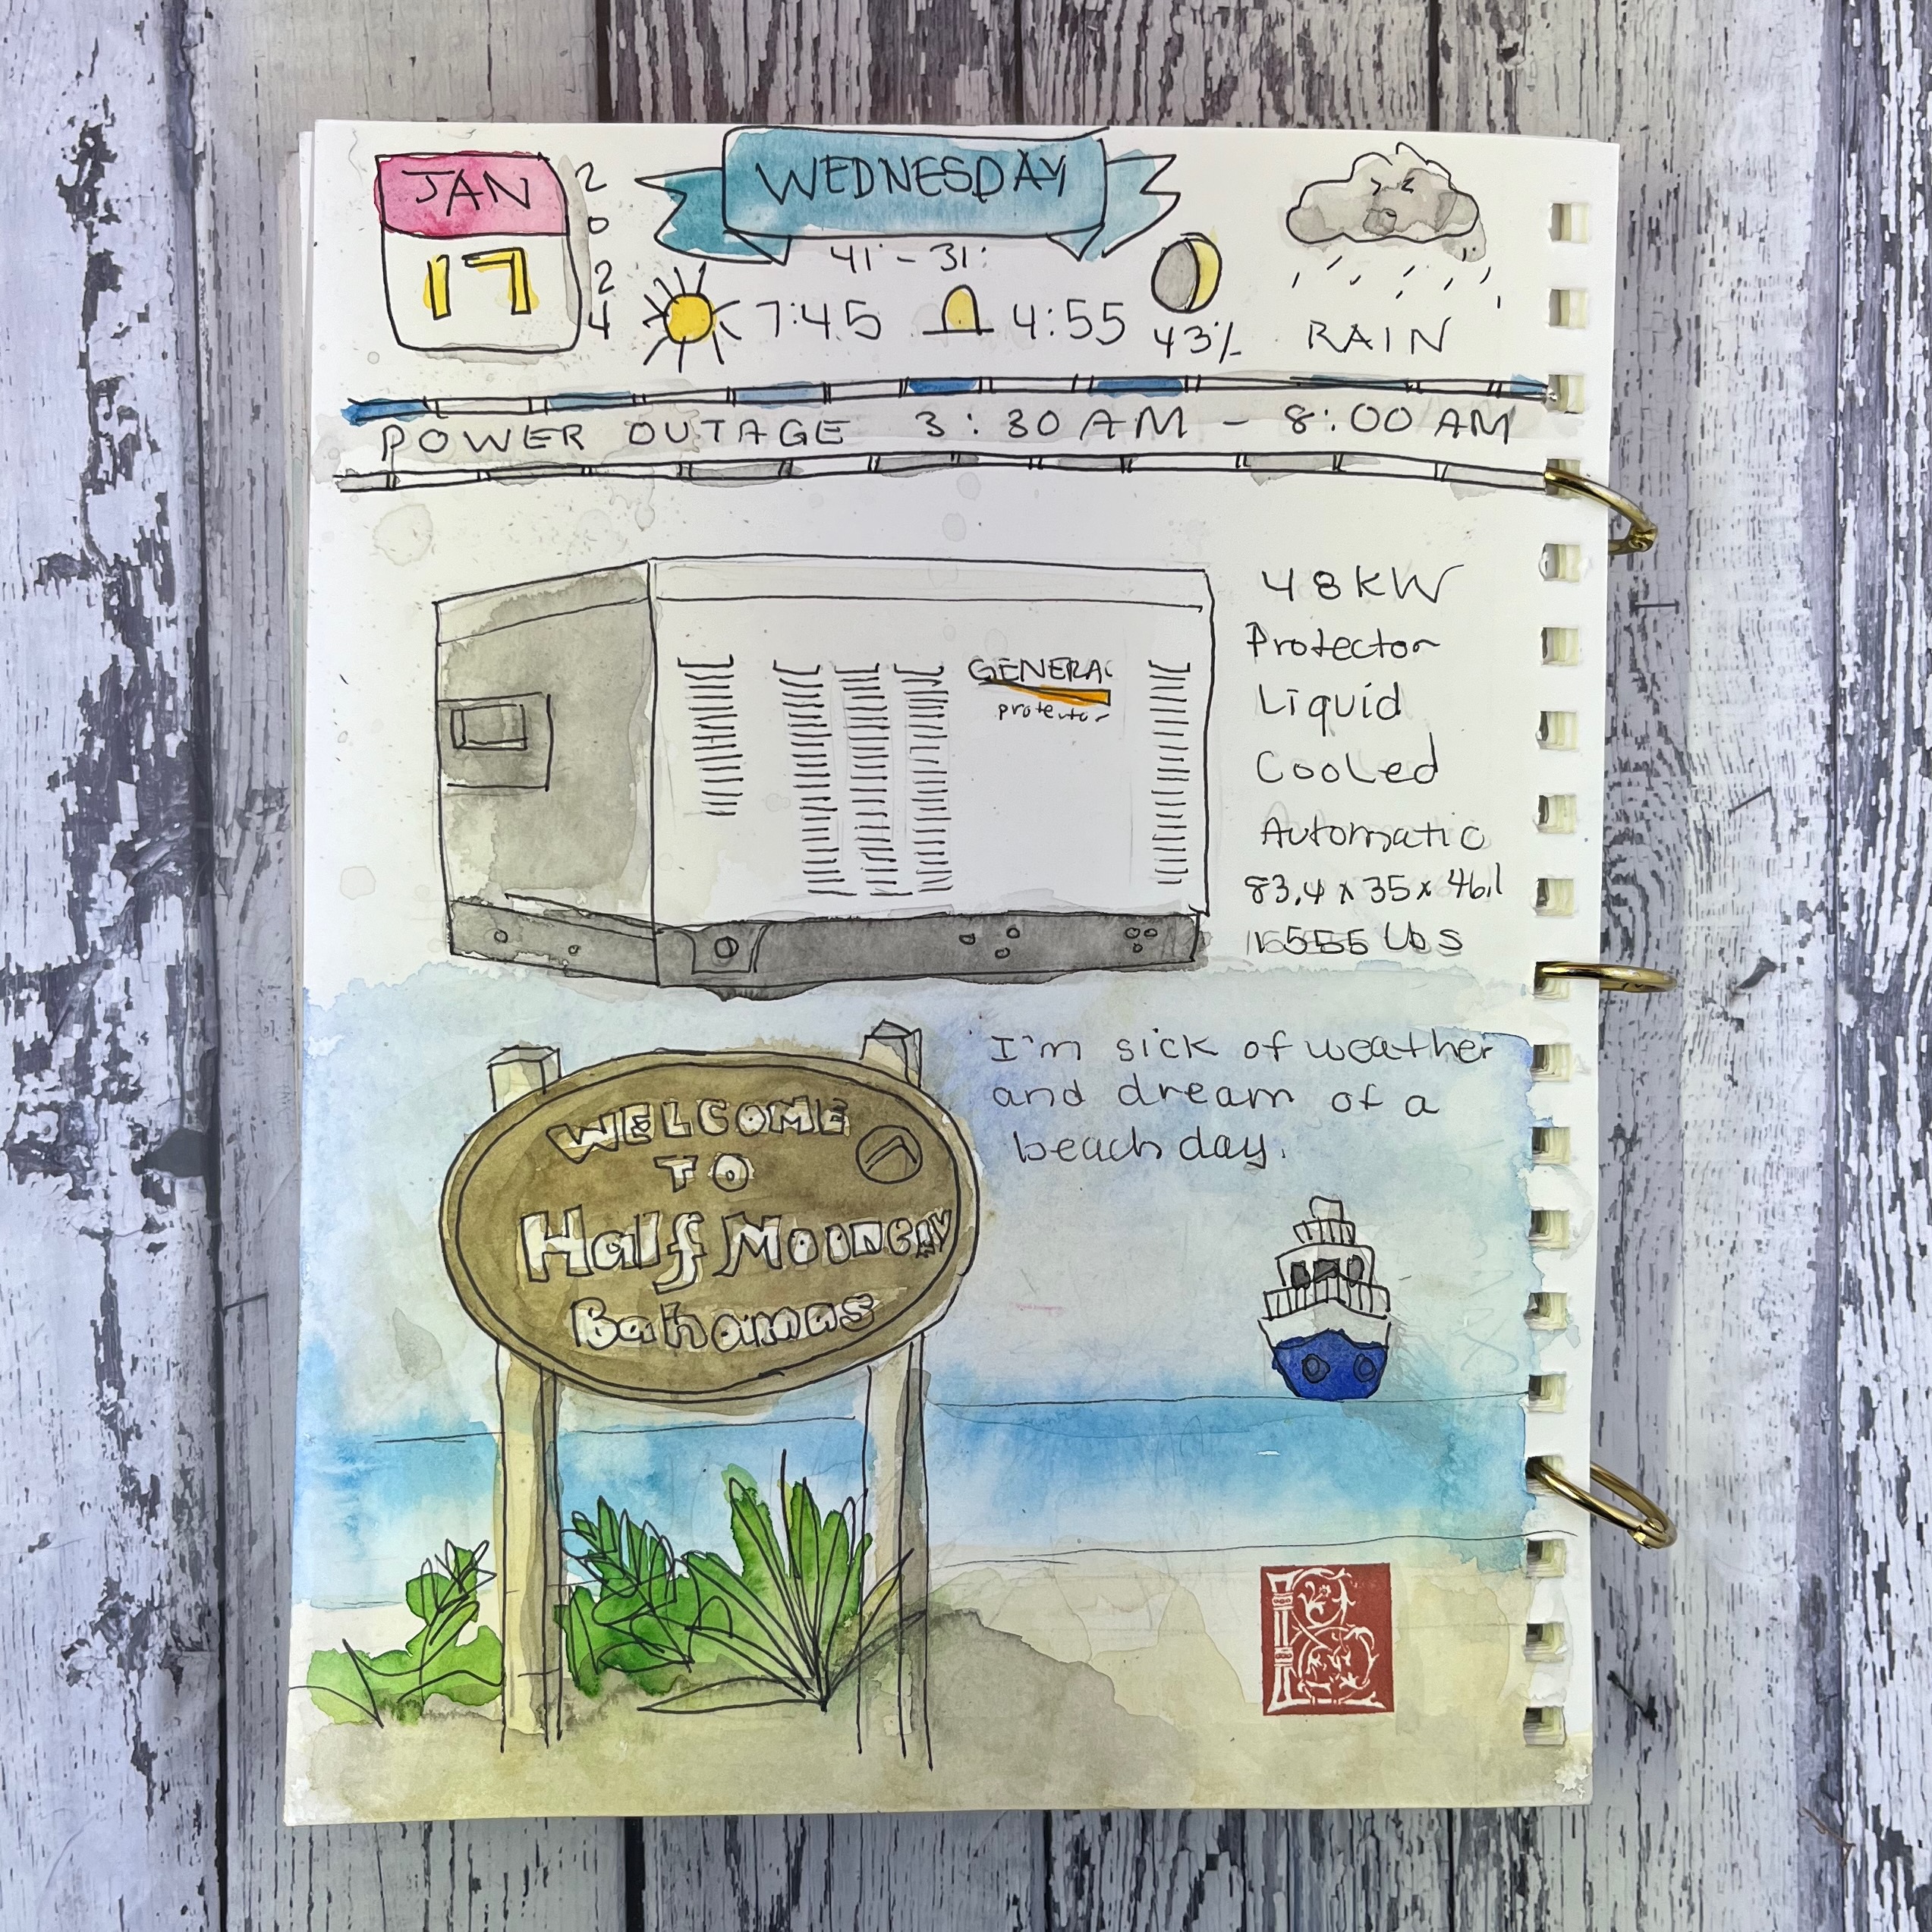 JAN
17
2024
WEDNESDAY
41° - 31°
7:45
4:55
43%
RAIN
POWER OUTAGE 3:30 AM - 8:00 AM
GENERAC
protector
48KW
Protector
Liquid
Cooled
Automatic
83.4 x 35 x 46.1
lbs
I'm sick of weather
and dream of a
beach day.
WELCOME
TO
Half Moon Cay
Bahamas